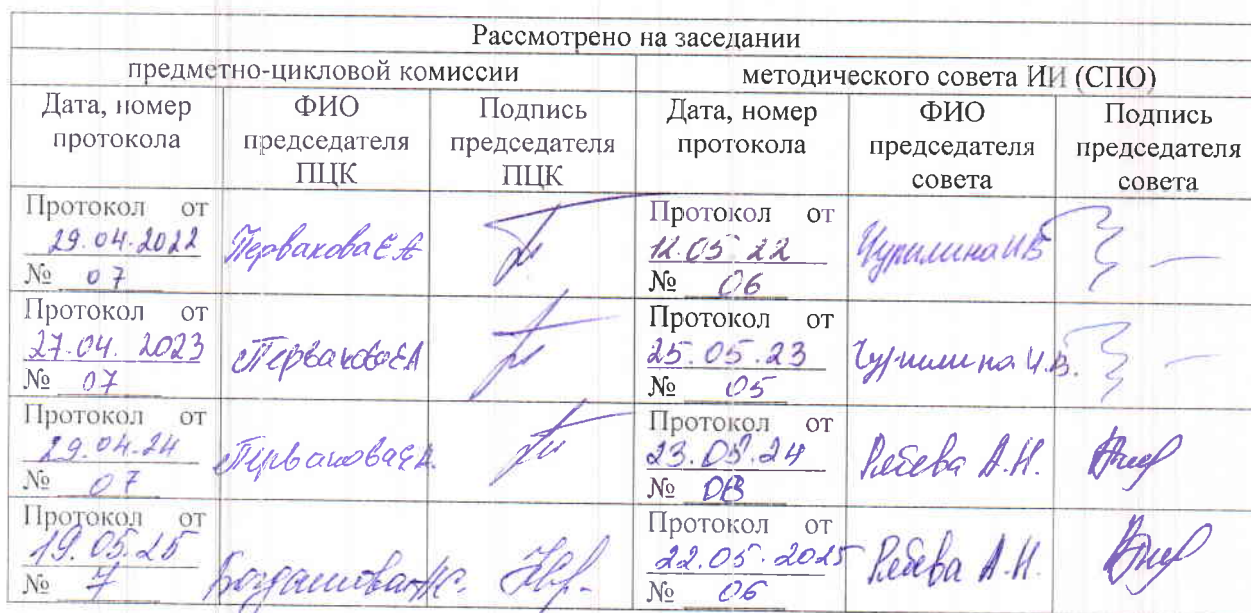 Рассмотрено на заседании
предметно-цикловой комиссии методического совета ИИ (СПО)
Дата, номер протокола ФИО председателя ПЦК Подпись председателя ПЦК Дата, номер протокола ФИО председателя совета Подпись председателя совета
Протокол от 29.04.2022 № 07 Первакова Е А Протокол от 12.05 22 № 06 Чурилина И В
Протокол от 27.04. 2023 № 07 Первакова Е А Протокол от 25.05.23 № 05 Чурилина И.В.
Протокол от 29.04.24 № 07 Первакова Е А. Протокол от 23.05.24 № А.Н.
Протокол от 19.05.25 № 7 Протокол от 22.05.2025 № 06 А.Н.